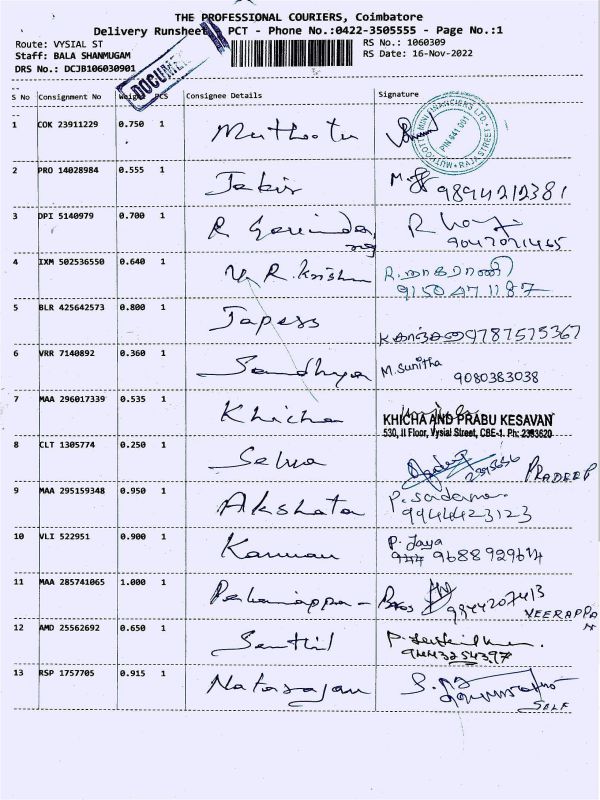 THE PROFESSIONAL COURIERS, Coimbatore
Delivery Runsheet PCT - Phone No.:0422-3505555 - Page No.:1
Route: VYSIAL ST
RS No.: 1060309
Staff: BALA SHANMUGAM
RS Date: 16-Nov-2022
DRS No.: DCJB106030901
DOCUMENT
S No Consignment No Weight PCS Consignee Details Signature
1 COK 23911229 0.750 1 Muthootu
MUTHOOT MINI FINANCIERS LTD. RAJA STREET PIN 641 001
2 PRO 14028984 0.555 1 Jakir M. 9894212381
3 DPI 5140979 0.700 1 R Govinda R
9047071465
4 IXM 502536550 0.640 1 R. Krishna R. நாகராணி
9150471187
5 BLR 425642573 0.800 1 Tapess 9787575367
6 VRR 7140892 0.360 1 Sandhya M. Sunitha
9080383038
7 MAA 296017339 0.535 1 Khicha KHICHA AND PRABU KESAVAN
530, II Floor, Vysial Street, CBE-1. Ph: 2393620
8 CLT 1305774 0.250 1 Selva 2395656 PRADEEP
9 MAA 295159348 0.950 1 Akshata P. Sadana
9944423123
10 VLI 522951 0.900 1 Kannan P. Jaya
9688929614
11 MAA 285741065 1.000 1 Palaniappa - 9844207413
VEERAPPAN
12 AMD 25562692 0.650 1 Senthil P. Senthilkumar
9443254397
13 RSP 1757705 0.915 1 Natarajan S.
SELF